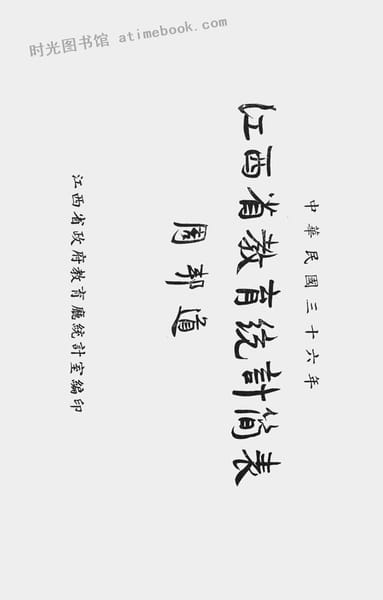 时光图书馆 atimebook.com
中華民國三十六年
江西省教育統計簡表
周邦道
江西省政府教育廳統計室編印